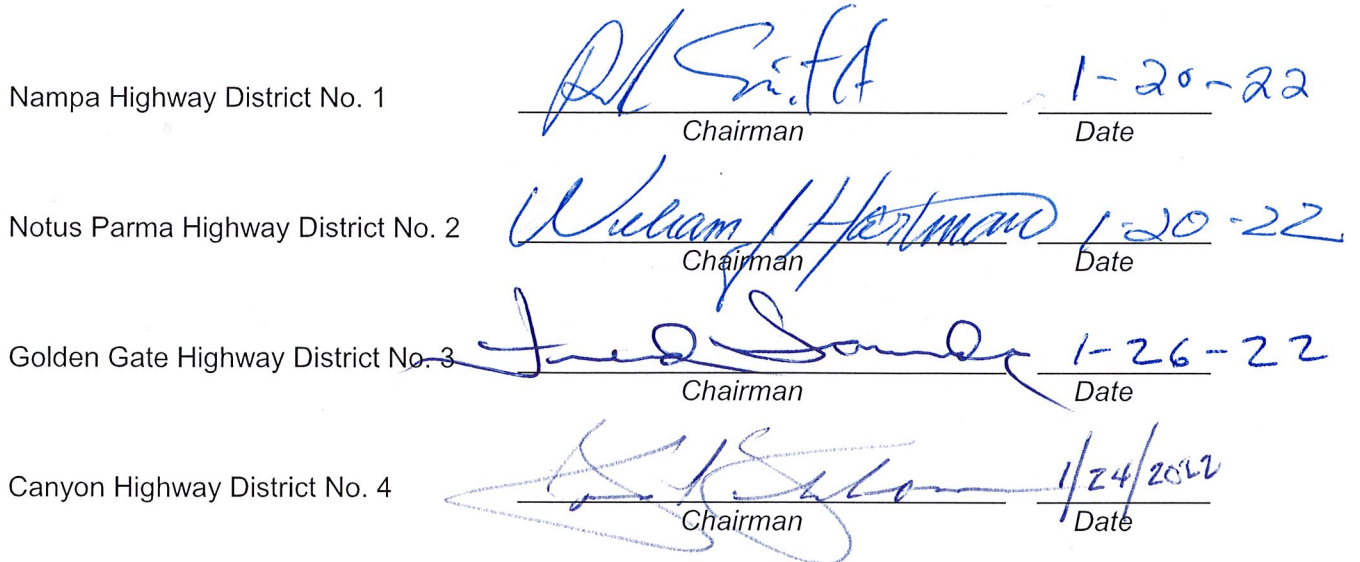 Nampa Highway District No. 1 Smith 1-20-22
Chairman Date
Notus Parma Highway District No. 2 William J Hartman 1-20-22
Chairman Date
Golden Gate Highway District No. 3 1-26-22
Chairman Date
Canyon Highway District No. 4 1/24/2022
Chairman Date